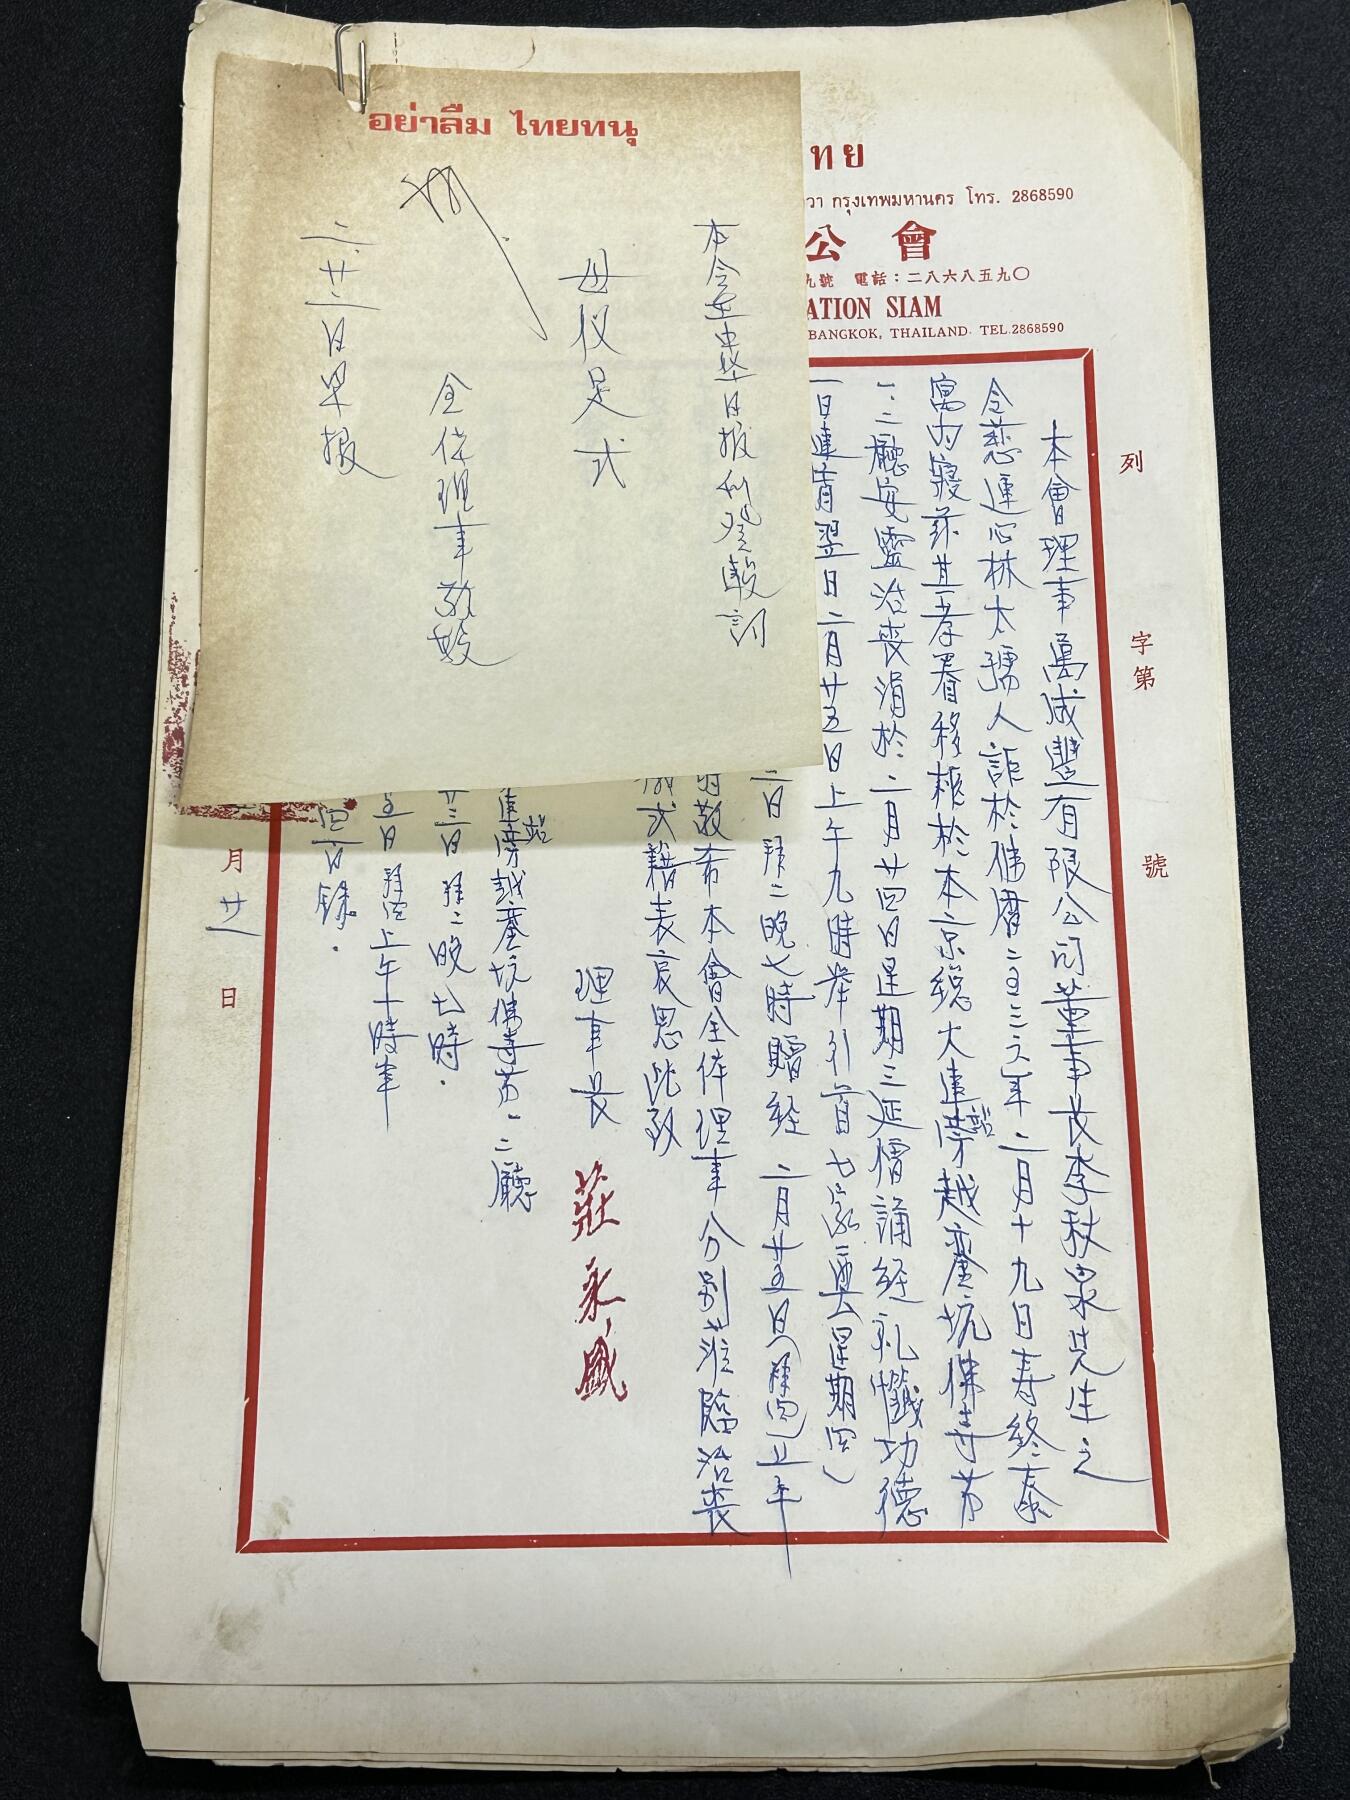 อย่าลืม ไทยทนุ
本会在中华日报刊登輓詞
母仪足式
全体理事敬輓
二.廿二日早报
ทย
วา กรุงเทพมหานคร โทร. 2868590
公會
九號 電話：二八六八五九〇
ATION SIAM
BANGKOK, THAILAND. TEL.2868590
列
字第
號
本會理事萬成豐有限公司董事長李秋泉先生之
令慈運心林太孺人詎於佛曆二五三六年二月十九日壽終泰
寓内寢茲其孝眷移柩於本京總大連站旁越䕫坑佛寺第
一.二廳安靈治喪涓於二月廿四日星期三延僧誦經礼懺功德
一日連宵翌日二月廿五日上午九時舉引首七家奠(星期四)
三日拜二晚七時贈经 二月廿五日(拜四)上午
時敬希本會全体理事分别蒞臨治喪
儀式藉表哀思此致
理事長 莊永盛
連站旁越䕫坑佛寺第一.二廳
廿三日拜二晚七時.
五日拜四上午十時半
月廿一日